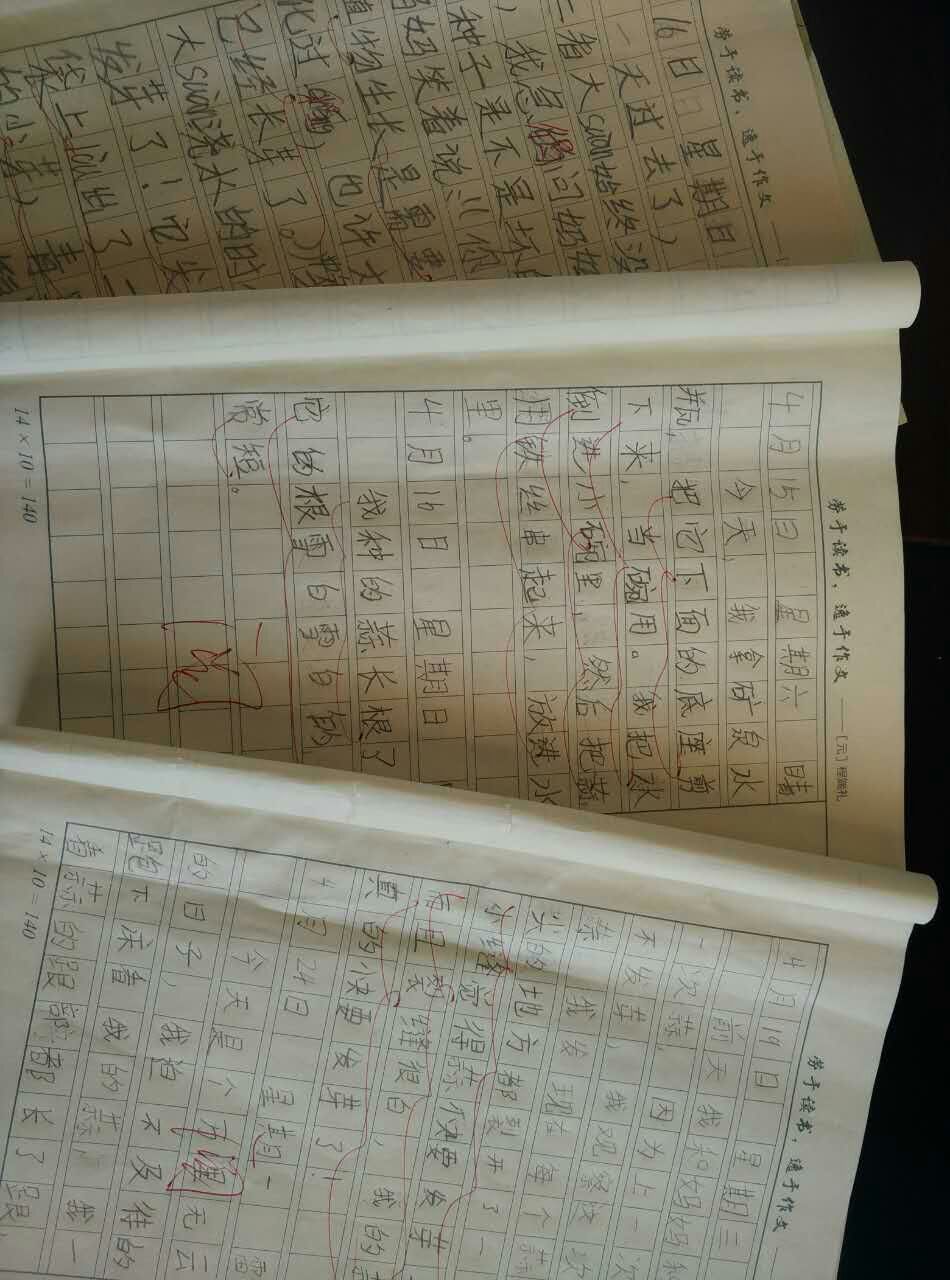 劳于读书，逸于作文
16日 星期日
一天过去了，
大suan始终没
我急 问
种子是不是坏
妈笑着说：“你
植物生长是需要
化过 也许大
已经长芽了。”
大suan浇水的时
发芽了！它尖
袋上 出了一
的小芽
劳于读书，逸于作文 ——[元]程端礼
4月15日 星期六 晴
今天，我拿矿泉水
瓶，把它下面的底座剪
下来，当碗用。我把水
倒进小碗里，然后把蒜
用铁丝串起来，放进水
里。
4月16日 星期日
我种的蒜长根了
它的根雪白雪白的
常短。
14×10＝140
劳于读书，逸于作文
4月19日 星期三
前天我和妈妈
一次蒜，因为上一次
不发芽，我观察这次
我发现每个蒜
尖的地方都裂开了一
小缝 得蒜快要发芽
里 缝很白，我的
真的快要发芽了！
4月24日 星期一
今天是个 无云
的日子，我迫不及待的
跑下床看我的蒜，我一
看蒜的跟部都长了
14×10＝140